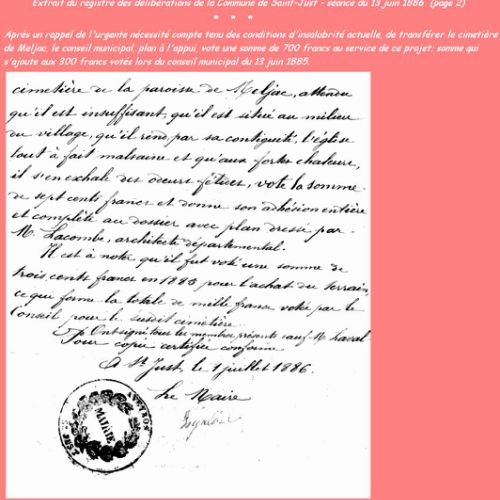 Extrait du registre des délibérations de la Commune de Saint-Just - séance du 13 juin 1886 (page 2)
* * *
Après un rappel de l'urgente nécessité compte tenu des conditions d'insalubrité actuelle, de transférer le cimetière
de Meljac, le conseil municipal, plan à l'appui, vote une somme de 700 francs au service de ce projet; somme qui
s'ajoute aux 300 francs votés lors du conseil municipal du 13 juin 1885.
cimetière de la paroisse de Meljac, attendu
qu'il est insuffisant, qu'il est situé au milieu
du village, qu'il rend par sa contiguité, l'église
tout à fait malsaine et qu'aux fortes chaleurs,
il s'en exhale des odeurs fétides, vote la somme
de sept cents francs et donne son adhésion entière
et complète au dossier avec plan dressé par
M. Lacombe, architecte départemental.
Il est à noter qu'il fut voté une somme de
trois cents francs en 1885 pour l'achat du terrain,
ce qui forme la totale de mille francs votés par le
Conseil pour le susdit cimetière.
Ont signé tous les membres présents sauf M. Laval
Pour copie certifiée conforme
A St Just, le 1 juillet 1886.
Le Maire
MAIRIE
AVEYRON